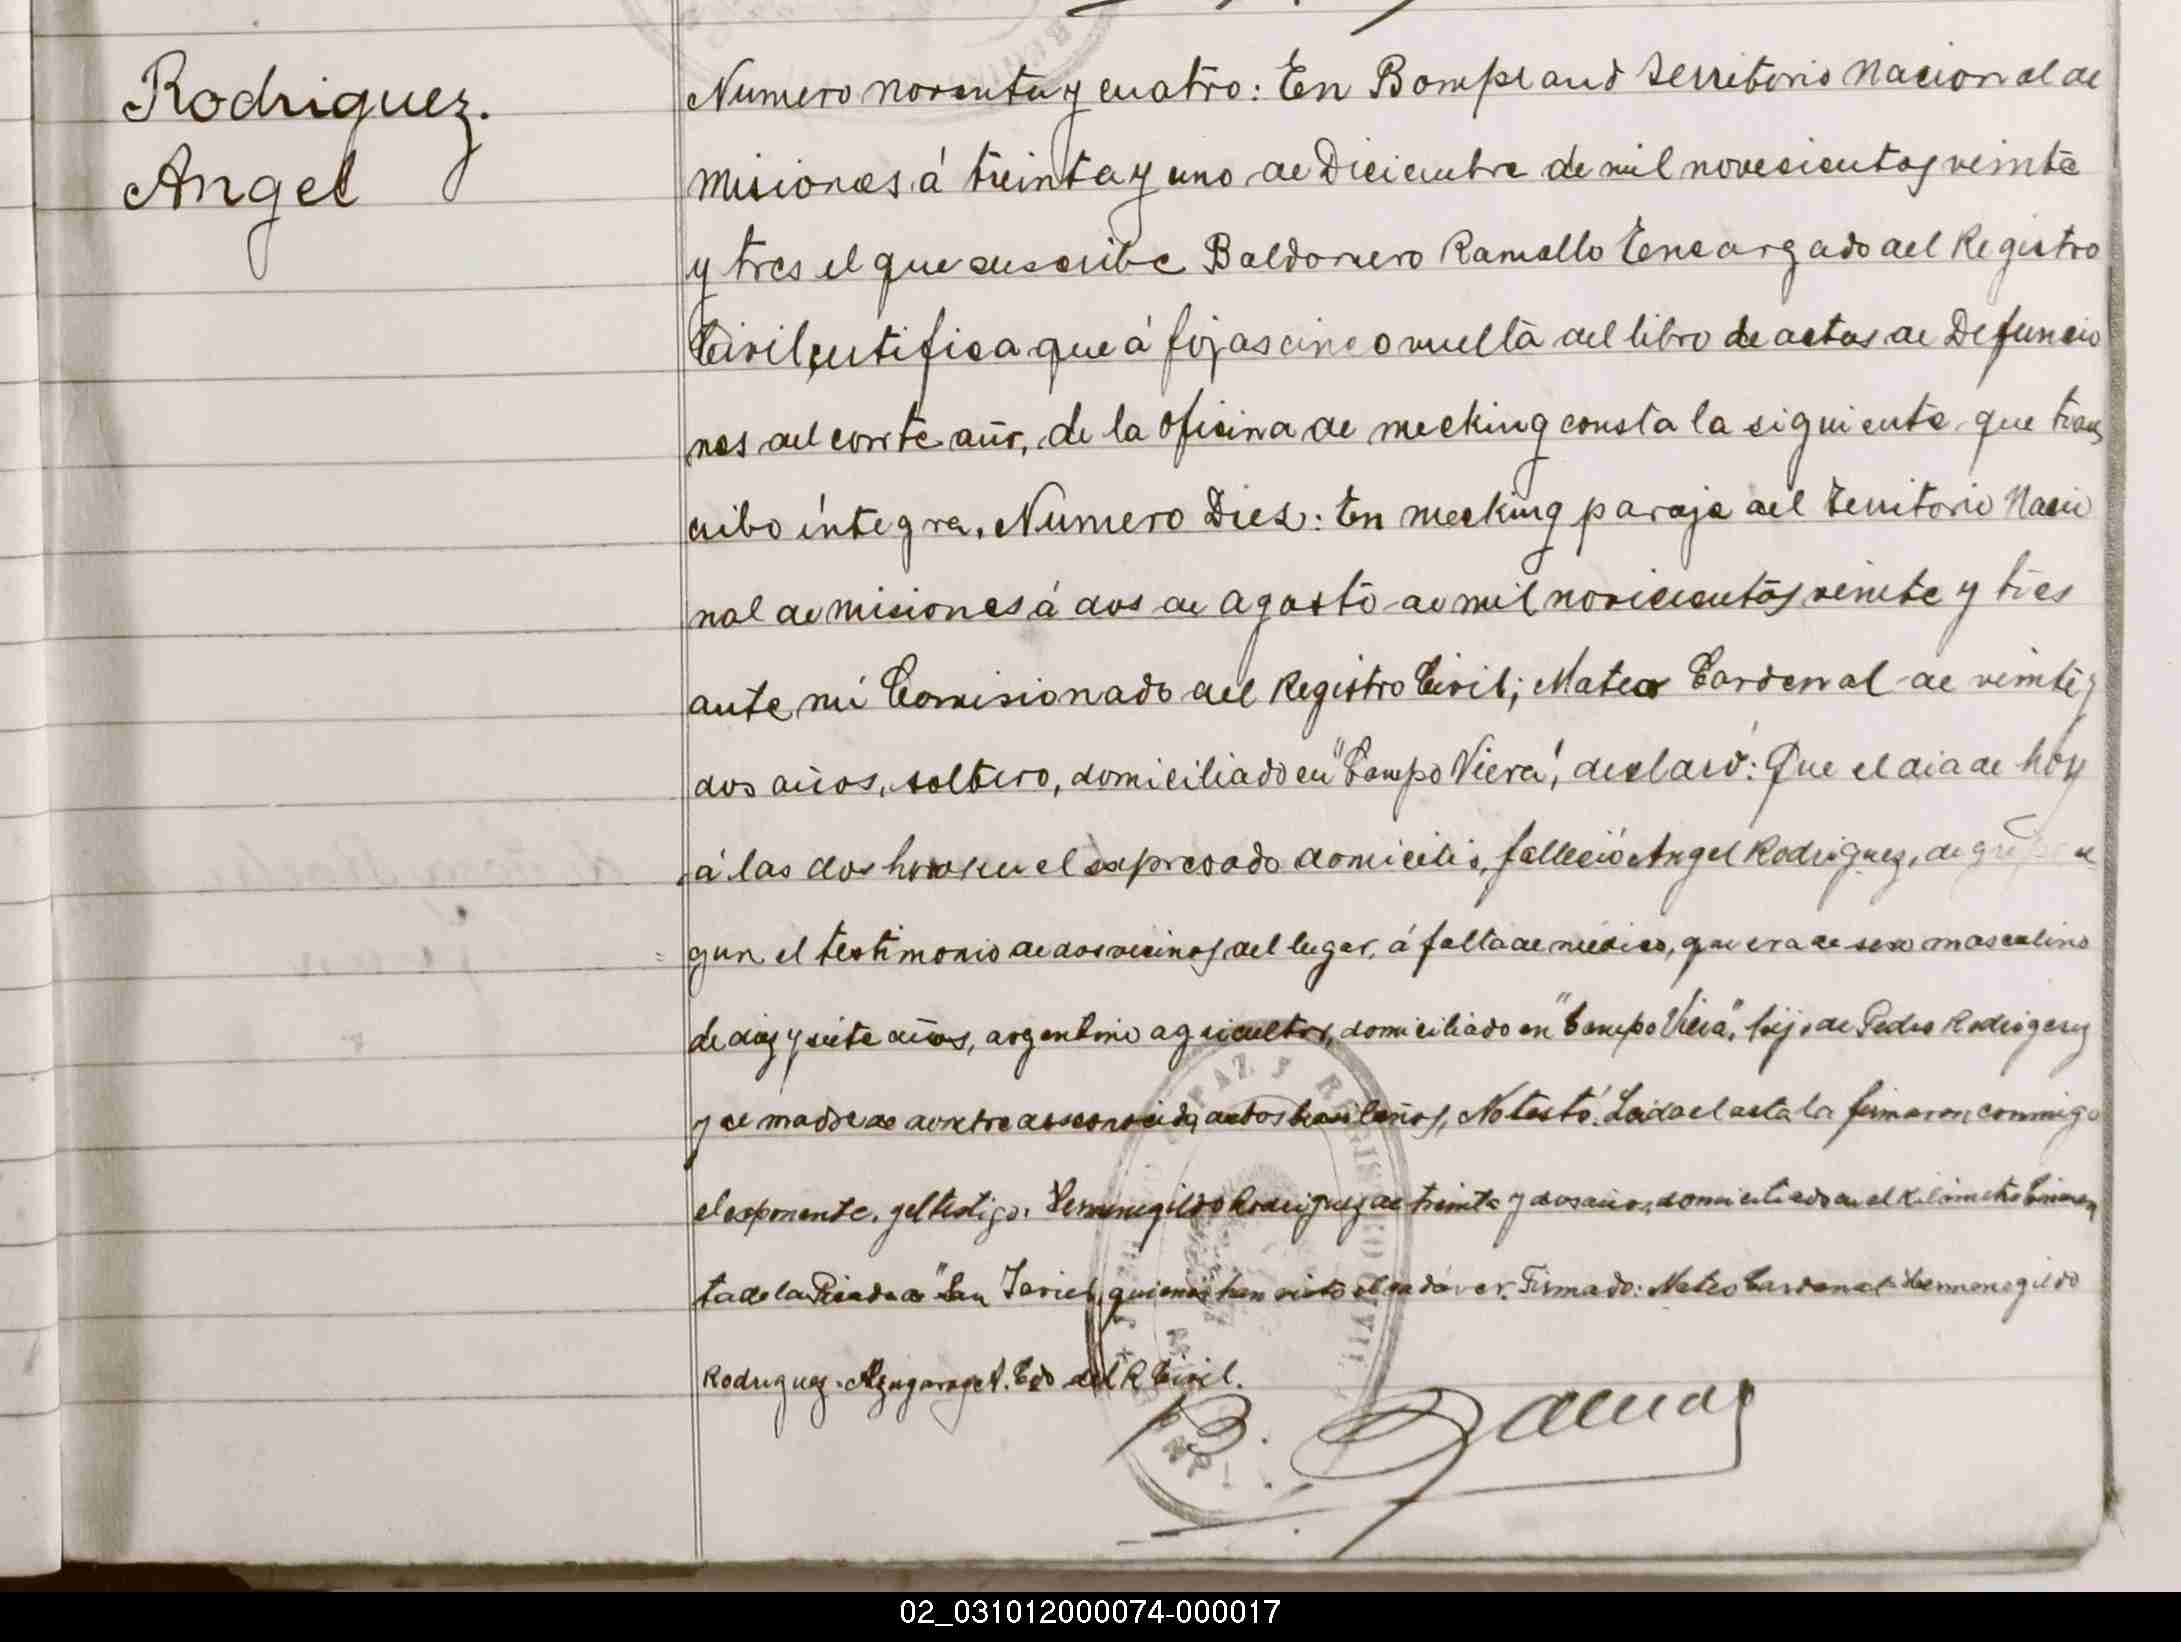 Rodriguez.
Angel
Numero noventa y cuatro: En Bompland Territorio Nacional de
Misiones á treinta y uno de Diciembre de mil novecientos veinte
y tres el que suscribe Baldomero Ramallo Encargado del Registro
Civil, certifica que á fojas cinco vuelta del libro de actas de Defuncio
nes del corrte año, de la Oficina de Mecking consta la siguiente que trans
cribo íntegra. Numero Diez: En Mecking paraje del Territorio Nacio
nal de Misiones á dos de Agosto de mil novecientos veinte y tres
ante mí Comisionado del Registro Civil; Mateo Cardenal de veinte y
dos años, soltero, domiciliado en "Campo Viera", declaró: Que el dia de hoy
á las dos horas en el expresado domicilio, falleció Angel Rodriguez, de se
gun el testimonio de dos vecinos del lugar, á falta de médico, que era de sexo masculino
de diez y siete años, argentino agricultor, domiciliado en "Campo Viera", hijo de Pedro Rodriguez
y de madre de nombre desconocida, ambos brasileños, No testó. Leida el acta la firmaron conmigo
el exponente, y el testigo: Hermenegildo Rodriguez de treinta y dos años, domiciliado en el Kilómetro Cincuen
ta de la Picada a "San Javier", quienes han visto el cadáver. Firmado: Mateo Cardenal Hermenegildo
Rodriguez. Edo del R Civil.
B.
PAZ Y REGISTRO CIVIL
02_031012000074-000017